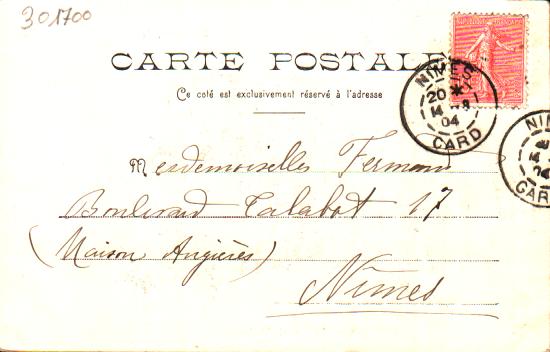 301700
CARTE POSTALE
Ce coté est exclusivement réservé à l'adresse
NIMES
20 *
14 -8
04
GARD
NIM
GARD
Mesdemoiselles Fermaud
Boulevard Talabot 17
(Maison Angières)
Nîmes